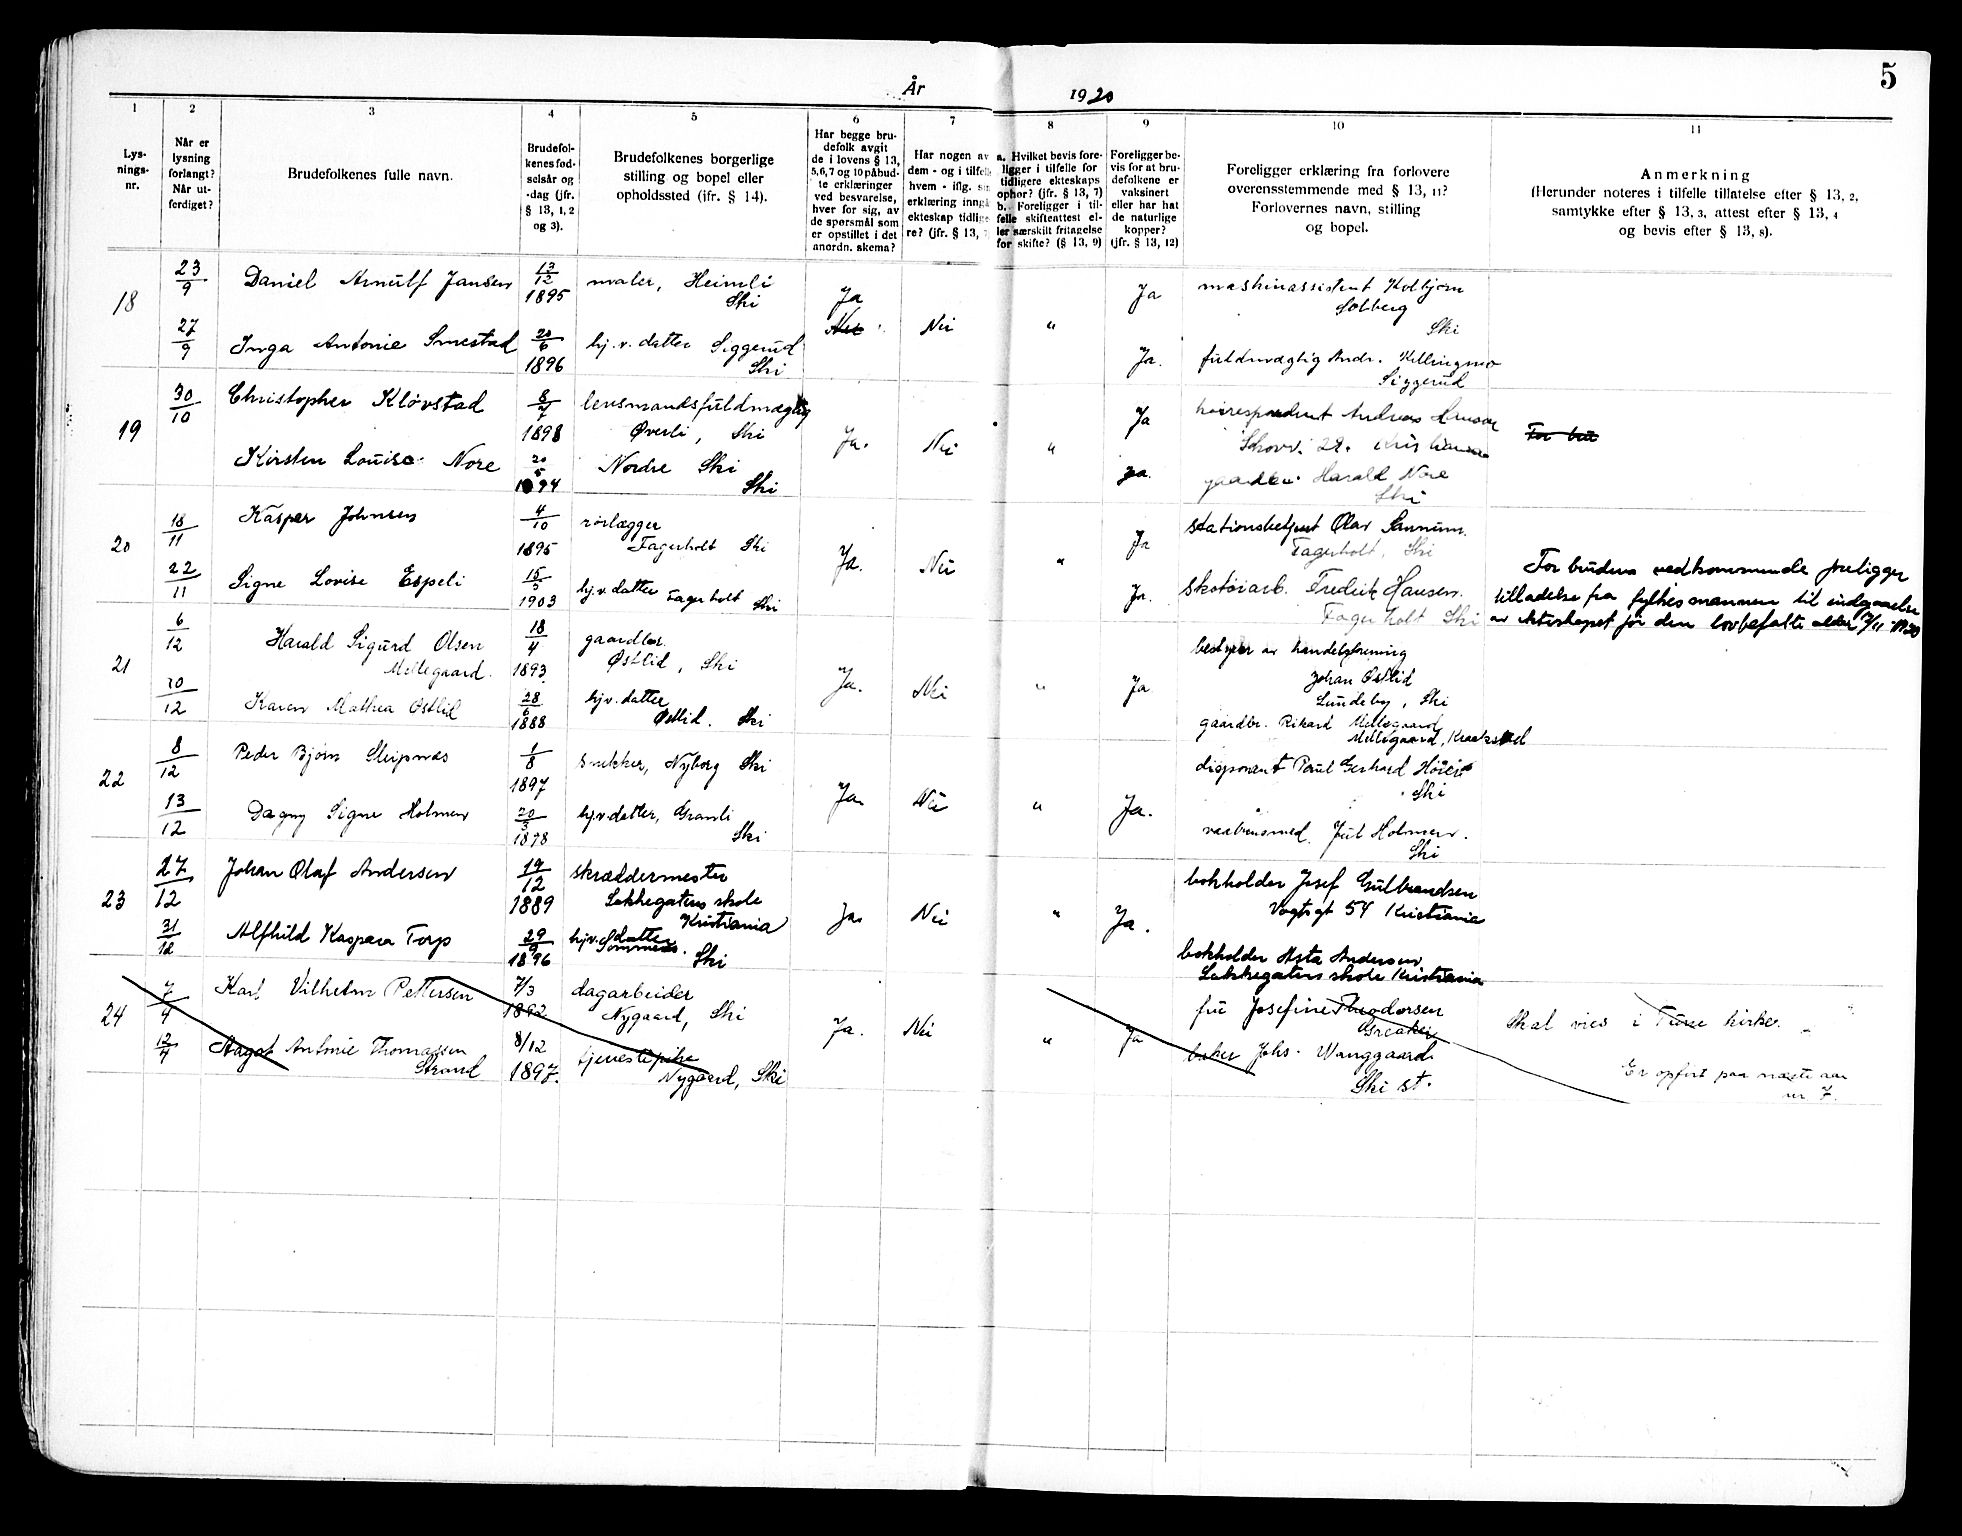 5
År 1920
1 2 3 4 5 6 7 8 9 10 11
Lys-
nings-
nr.
Når er
lysning
forlangt?
Når ut-
ferdiget?
Brudefolkenes fulle navn.
Brudefol-
kenes fød-
selsår og
-dag (jfr.
§ 13, 1, 2
og 3).
Brudefolkenes borgerlige
stilling og bopel eller
opholdssted (ifr. § 14).
Har begge bru-
defolk avgit
de i lovens § 13,
5,6,7 og 10 påbud-
te erklæringer
ved besvarelse,
hver for sig, av
de spørsmål som
er opstillet i det
anordn. skema?
Har nogen av
dem - og i tilfelle
hvem - iflg. sin
erklæring inngå
ekteskap tidlige-
re? (jfr. § 13,
a. Hvilket bevis fore-
ligger i tilfelle for
tidligere ekteskaps
ophør? (jfr. § 13, 7)
b. Foreligger i til-
felle skifteattest el-
ler særskilt fritagelse
for skifte? (§ 13, 9)
Foreligger be-
vis for at bru-
defolkene er
vaksinert
eller har hat
de naturlige
kopper?
(jfr. § 13, 12)
Foreligger erklæring fra forlovere
overensstemmende med § 13, 11?
Forlovernes navn, stilling
og bopel.
Anmerkning
(Herunder noteres i tilfelle tillatelse efter § 13, 2,
samtykke efter § 13, 3, attest efter § 13, 4
og bevis efter § 13, 8).
18
23/9
Daniel Arnulf Jansen
13/12 1895
maler, Heimli
Ski
Ja
Nei
Nei
"
Ja
maskinassistent Kolbjørn
Solberg
Ski
27/9
Inga Antonie Smestad
20/6 1896
hj.v. datter Siggerud
Ski
Ja.
fuldmægtig Andr. Killingmo
Siggerud
19
30/10
Christopher Kløvstad
8/7 1898
lensmandsfuldmægtig
Øverli, Ski
Ja.
Nei
"
Ja
korrespondent Andreas Hansen
Skovv. 28. Kristiania
For bru
Kirsten Louise Nore
20/5 1894
Nordre Ski
Ski
Ja.
gaardbr. Harald Nore
Ski
20
18/11
Kasper Johnsen
4/10 1895
rørlægger
Fagerholt Ski
Ja.
Nei
"
Ja
stationsbetjent Olav Sannum.
Fagerholt, Ski
22/11
Signe Lovise Espeli
15/5 1903
hj.v. datter Fagerholt Ski
Ja.
skotøiarb. Fredrik Hansen.
Fagerholt Ski
For bruden vedkommende foreligger
tilladelse fra fylkesmannen til indgaaelse
av ekteskapet før den lovbefalte alder 7/11 1920
21
6/12
Harald Sigurd Olsen
Mellegaard.
18/4 1893.
gaardbr.
Østlid, Ski
Ja.
Nei
"
Ja
bestyrer av handelsforening
Johan Østlid
Lundeby, Ski
10/12
Karen Mathea Østlid
28/6 1888
hj.v. datter
Østlid. Ski
gaardbr. Rikard Mellegaard
Mellegaard, Kraakstad
22
8/12
Peder Bjørn Sleipnæs
1/8 1897
snekker, Nyborg Ski
Ja.
Nei
"
Ja.
disponent Paul Gerhard
Ski
13/12
Dagny Signe Holmen
20/3 1898
hj.v. datter, Granli
Ski
vaabensmed. Jul Holmen.
Ski
23
27/12
Johan Olaf Andersen
19/12 1889
skræddermester
Lakkegatens skole
Kristiania
Ja.
Nei
"
Ja.
bokholder Josef Gulbrandsen
Vogtsgt 54 Kristiania
31/12
Alfhild Kaspara Torp
29/9 1896
hj.v. datter
Ski
bokholder Asta Andersen
Lakkegatens skole Kristiania
24
7/4
Karl Vilhelm Pettersen
7/3 1892
dagarbeider
Nygaard, Ski
Ja.
Nei
"
Ja
fru Josefine Theodorsen
Greaker
Skal vies i Tune kirke.
12/4
Aagot Antonie Thomassen
Strand
8/12 1897.
tjenestepike
Nygaard, Ski
baker Johs. Wanggaard
Ski st.
Er opført paa næste aar
nr 7.